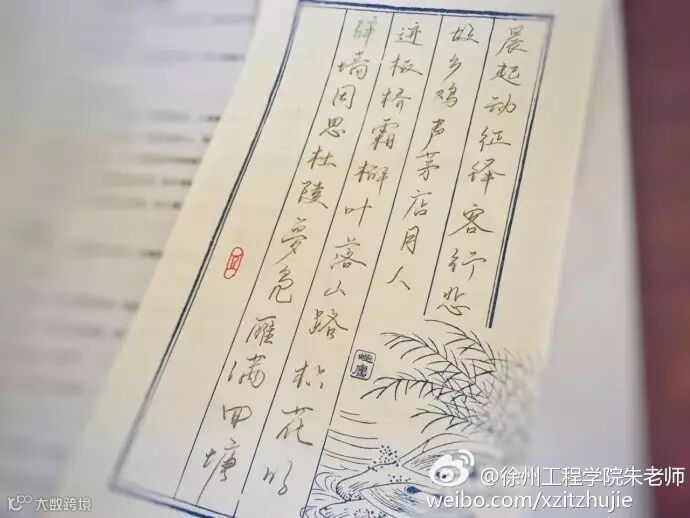 晨起动征铎客行悲
故乡鸡声茅店月人
迹板桥霜槲叶落山路枳花明
驿墙因思杜陵梦凫雁满回塘
@徐州工程学院朱老师
weibo.com/xzitzhujie
大数跨境